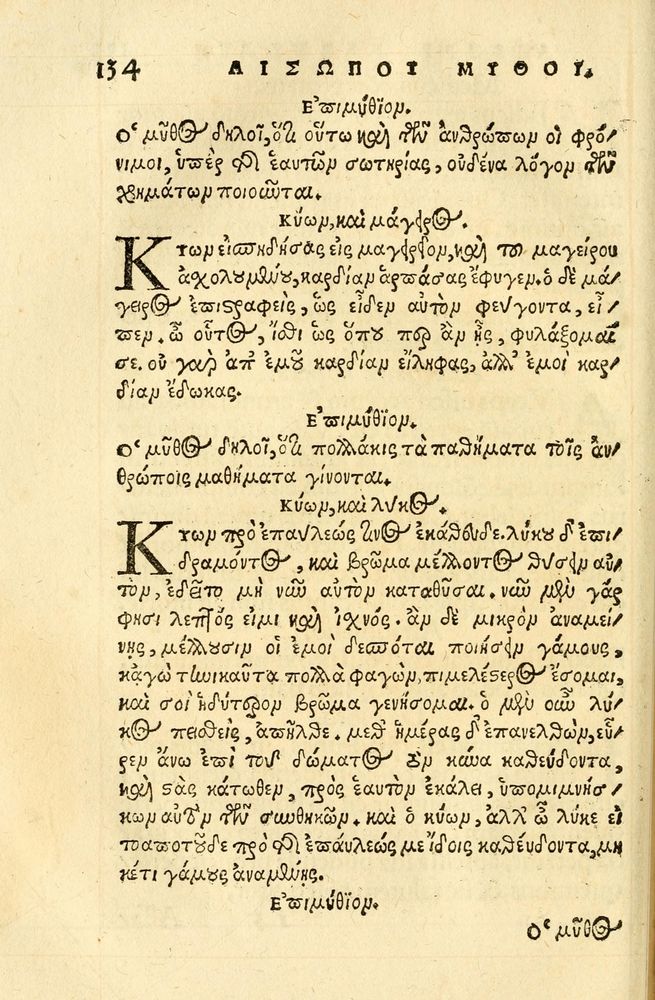 134 ΑΙΣΩΠΟΥ ΜΥΘΟΙ.
Ἐπιμύθϊον.
Ὁ μῦθος δηλοῖ, ὅτι οὕτω καὶ τῶν ἀνθρώπων οἱ φρό/
νιμοι, ὑπὲρ τῆς ἑαυτῶν σωτηρίας, οὐδένα λόγον τῶν
χρημάτων ποιοῦνται.
Κύων, καὶ μάγειρος.
Κύων εἰσπηδήσας εἰς μαγειρεῖον, καὶ τοῦ μαγείρου
ἀσχολουμένου, καρδίαν ἁρπάσας ἔφυγεν. ὁ δὲ μά/
γειρος ἐπιστραφεὶς, ὡς εἶδεν αὐτὸν φεύγοντα, εἶ/
πεν. ὦ οὗτος, ἴσθι ὡς ὅπου περ ἂν ᾖς, φυλάξομαί
σε. οὐ γὰρ ἀπ' ἐμοῦ καρδίαν εἴληφας, ἀλλ' ἐμοὶ καρ/
δίαν ἔδωκας.
Ἐπιμύθϊον.
Ὁ μῦθος δηλοῖ, ὅτι πολλάκις τὰ παθήματα τοῖς ἀν/
θρώποις μαθήματα γίνονται.
Κύων, καὶ λύκος.
Κύων πρὸ ἐπαύλεώς τινος ἐκάθευδε. λύκου δ' ἐπι/
δραμόντος, καὶ βρῶμα μέλλοντος θύσειν αὐ/
τὸν, ἐδεῖτο μὴ νῦν αὐτὸν καταθῦσαι. νῦν μὲν γάρ
φησι λεπτός εἰμι καὶ ἰχνός. ἂν δὲ μικρὸν ἀναμεί/
νῃς, μέλλουσιν οἱ ἐμοὶ δεσπόται ποιήσειν γάμους,
κἀγὼ τηνικαῦτα πολλὰ φαγὼν, πιμελέστερος ἔσομαι,
καὶ σοὶ ἡδύτερον βρῶμα γενήσομαι. ὁ μὲν οὖν λύ/
κος πεισθεὶς, ἀπῆλθε. μεθ' ἡμέρας δ' ἐπανελθὼν, εὗ/
ρεν ἄνω ἐπὶ τοῦ δώματος τὸν κύνα καθεύδοντα,
καὶ στὰς κάτωθεν, πρὸς ἑαυτὸν ἐκάλει, ὑπομιμνήσ/
κων αὐτὸν τῶν συνθηκῶν. καὶ ὁ κύων, ἀλλ' ὦ λύκε εἰ
τοαποτοῦδε πρὸ τῆς ἐπαύλεώς με ἴδοις καθεύδοντα, μη
κέτι γάμους ἀναμείνῃς.
Ἐπιμύθϊον.
Ὁ μῦθος